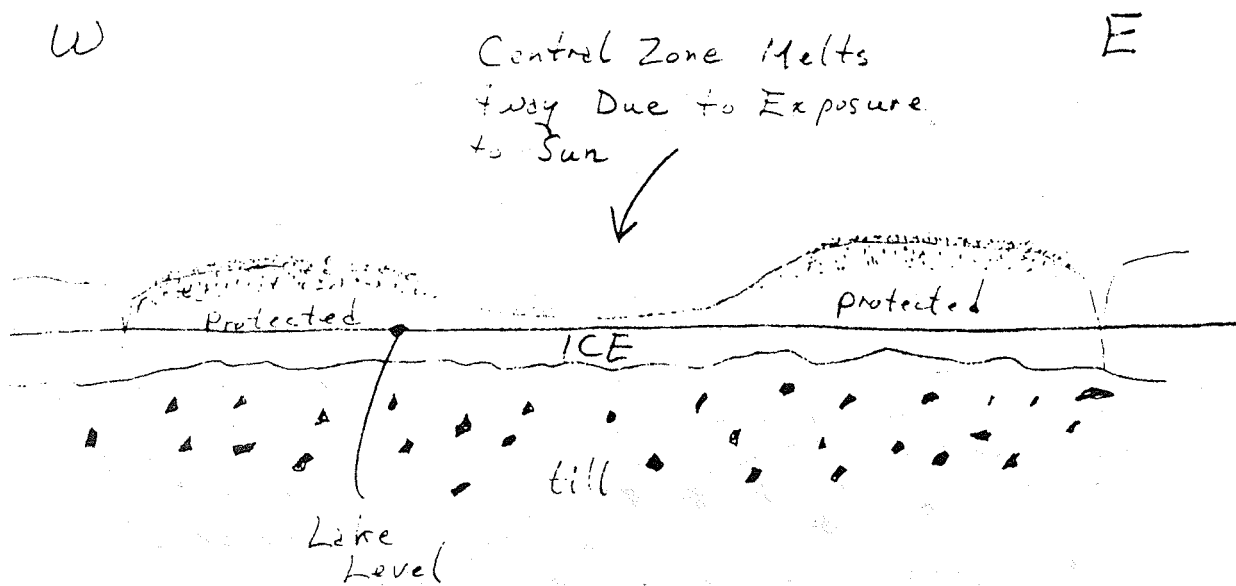 W
E
Central Zone Melts
Away Due to Exposure
to Sun
Protected
Protected
ICE
till
Lake
Level